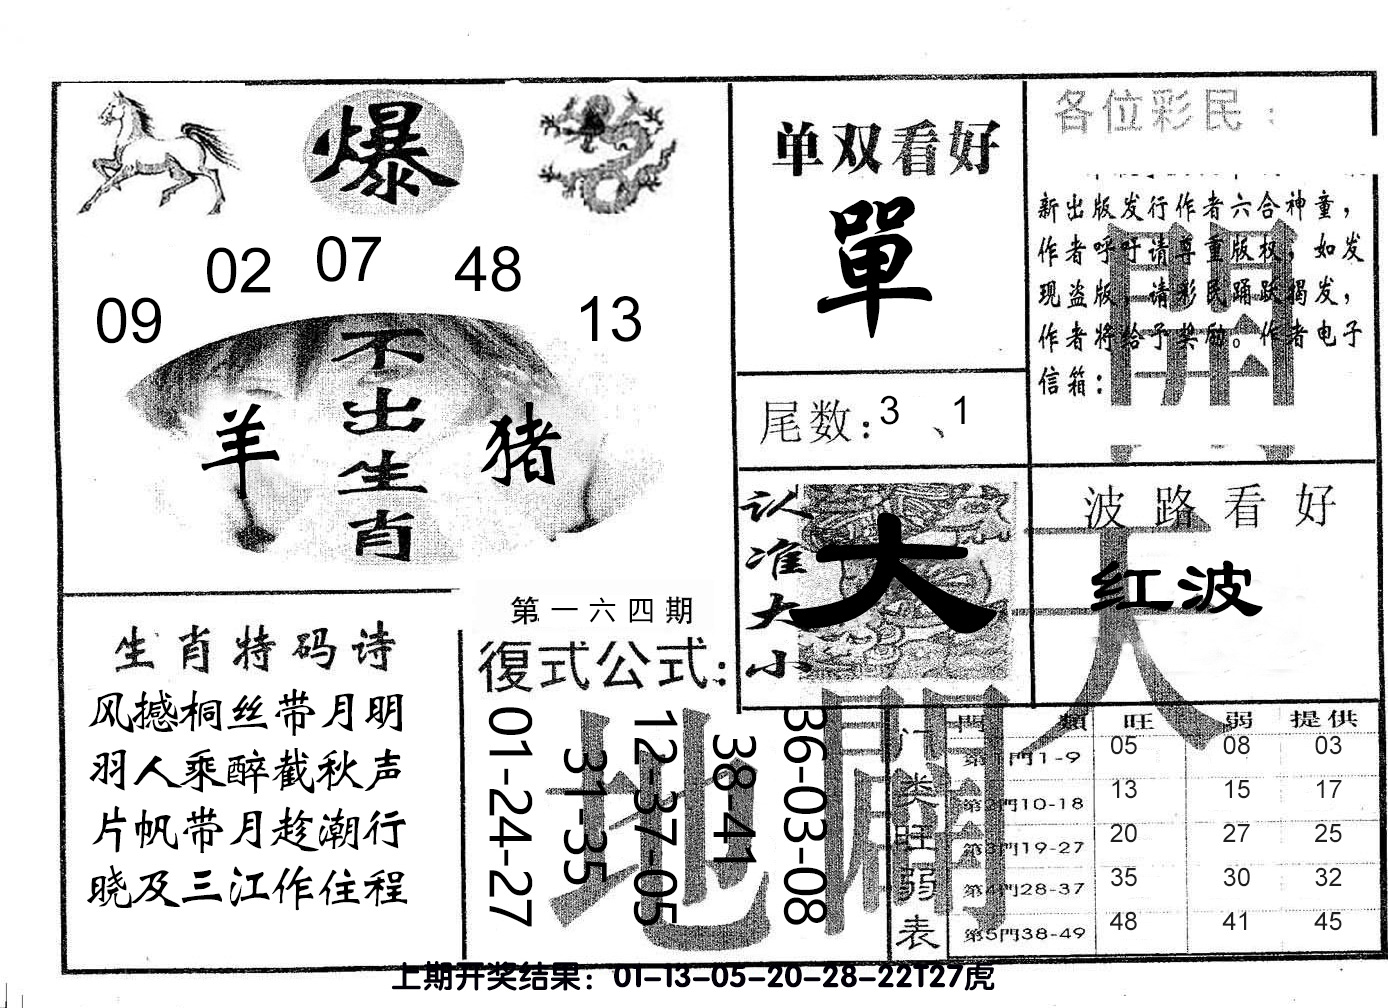 爆
09 02 07 48 13
不出生肖
羊 猪
生肖特码诗
风撼桐丝带月明
羽人乘醉截秋声
片帆带月趁潮行
晓及三江作住程
单双看好
單
尾数:3、1
认准大小
大
各位彩民：
新出版发行作者六合神童，
作者呼吁请尊重版权，如发
现盗版，请彩民踊跃揭发，
作者将给予奖励。作者电子
信箱：
波路看好
红波
天
開
地
闢
第一六四期
復式公式:
01-24-27
31-35
12-37-05
38-41
36-03-08
门类旺弱表
門類 旺 弱 提供
第1門1-9 05 08 03
第2門10-18 13 15 17
第3門19-27 20 27 25
第4門28-37 35 30 32
第5門38-49 48 41 45
上期开奖结果：01-13-05-20-28-22T27虎